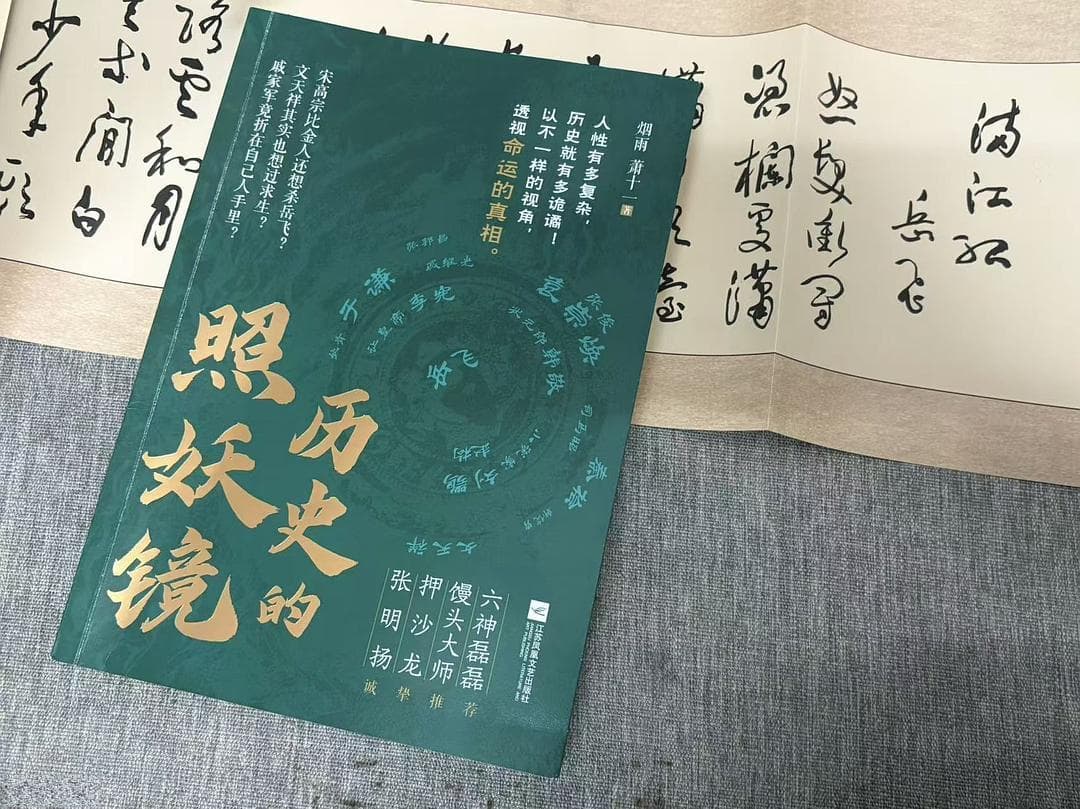 历史的
照妖镜
烟雨 萧十一 著
人性有多复杂，
历史就有多诡谲！
以不一样的视角，
透视命运的真相。
宋高宗比金人还想杀岳飞？
文天祥其实也想过求生？
戚家军竟折在自己人手里？
张郭昌
戚继光
于谦
让皇帝 李宪
岳飞
状元郎 韩敬
袁崇焕
张俊
司马昭
秦桧
刘鹗
文天祥
六神磊磊
馒头大师
押沙龙
张明扬
诚挚推荐
江苏凤凰文艺出版社
满江红
岳飞
怒发冲冠
凭栏处潇
路云和月
等闲白
少年头